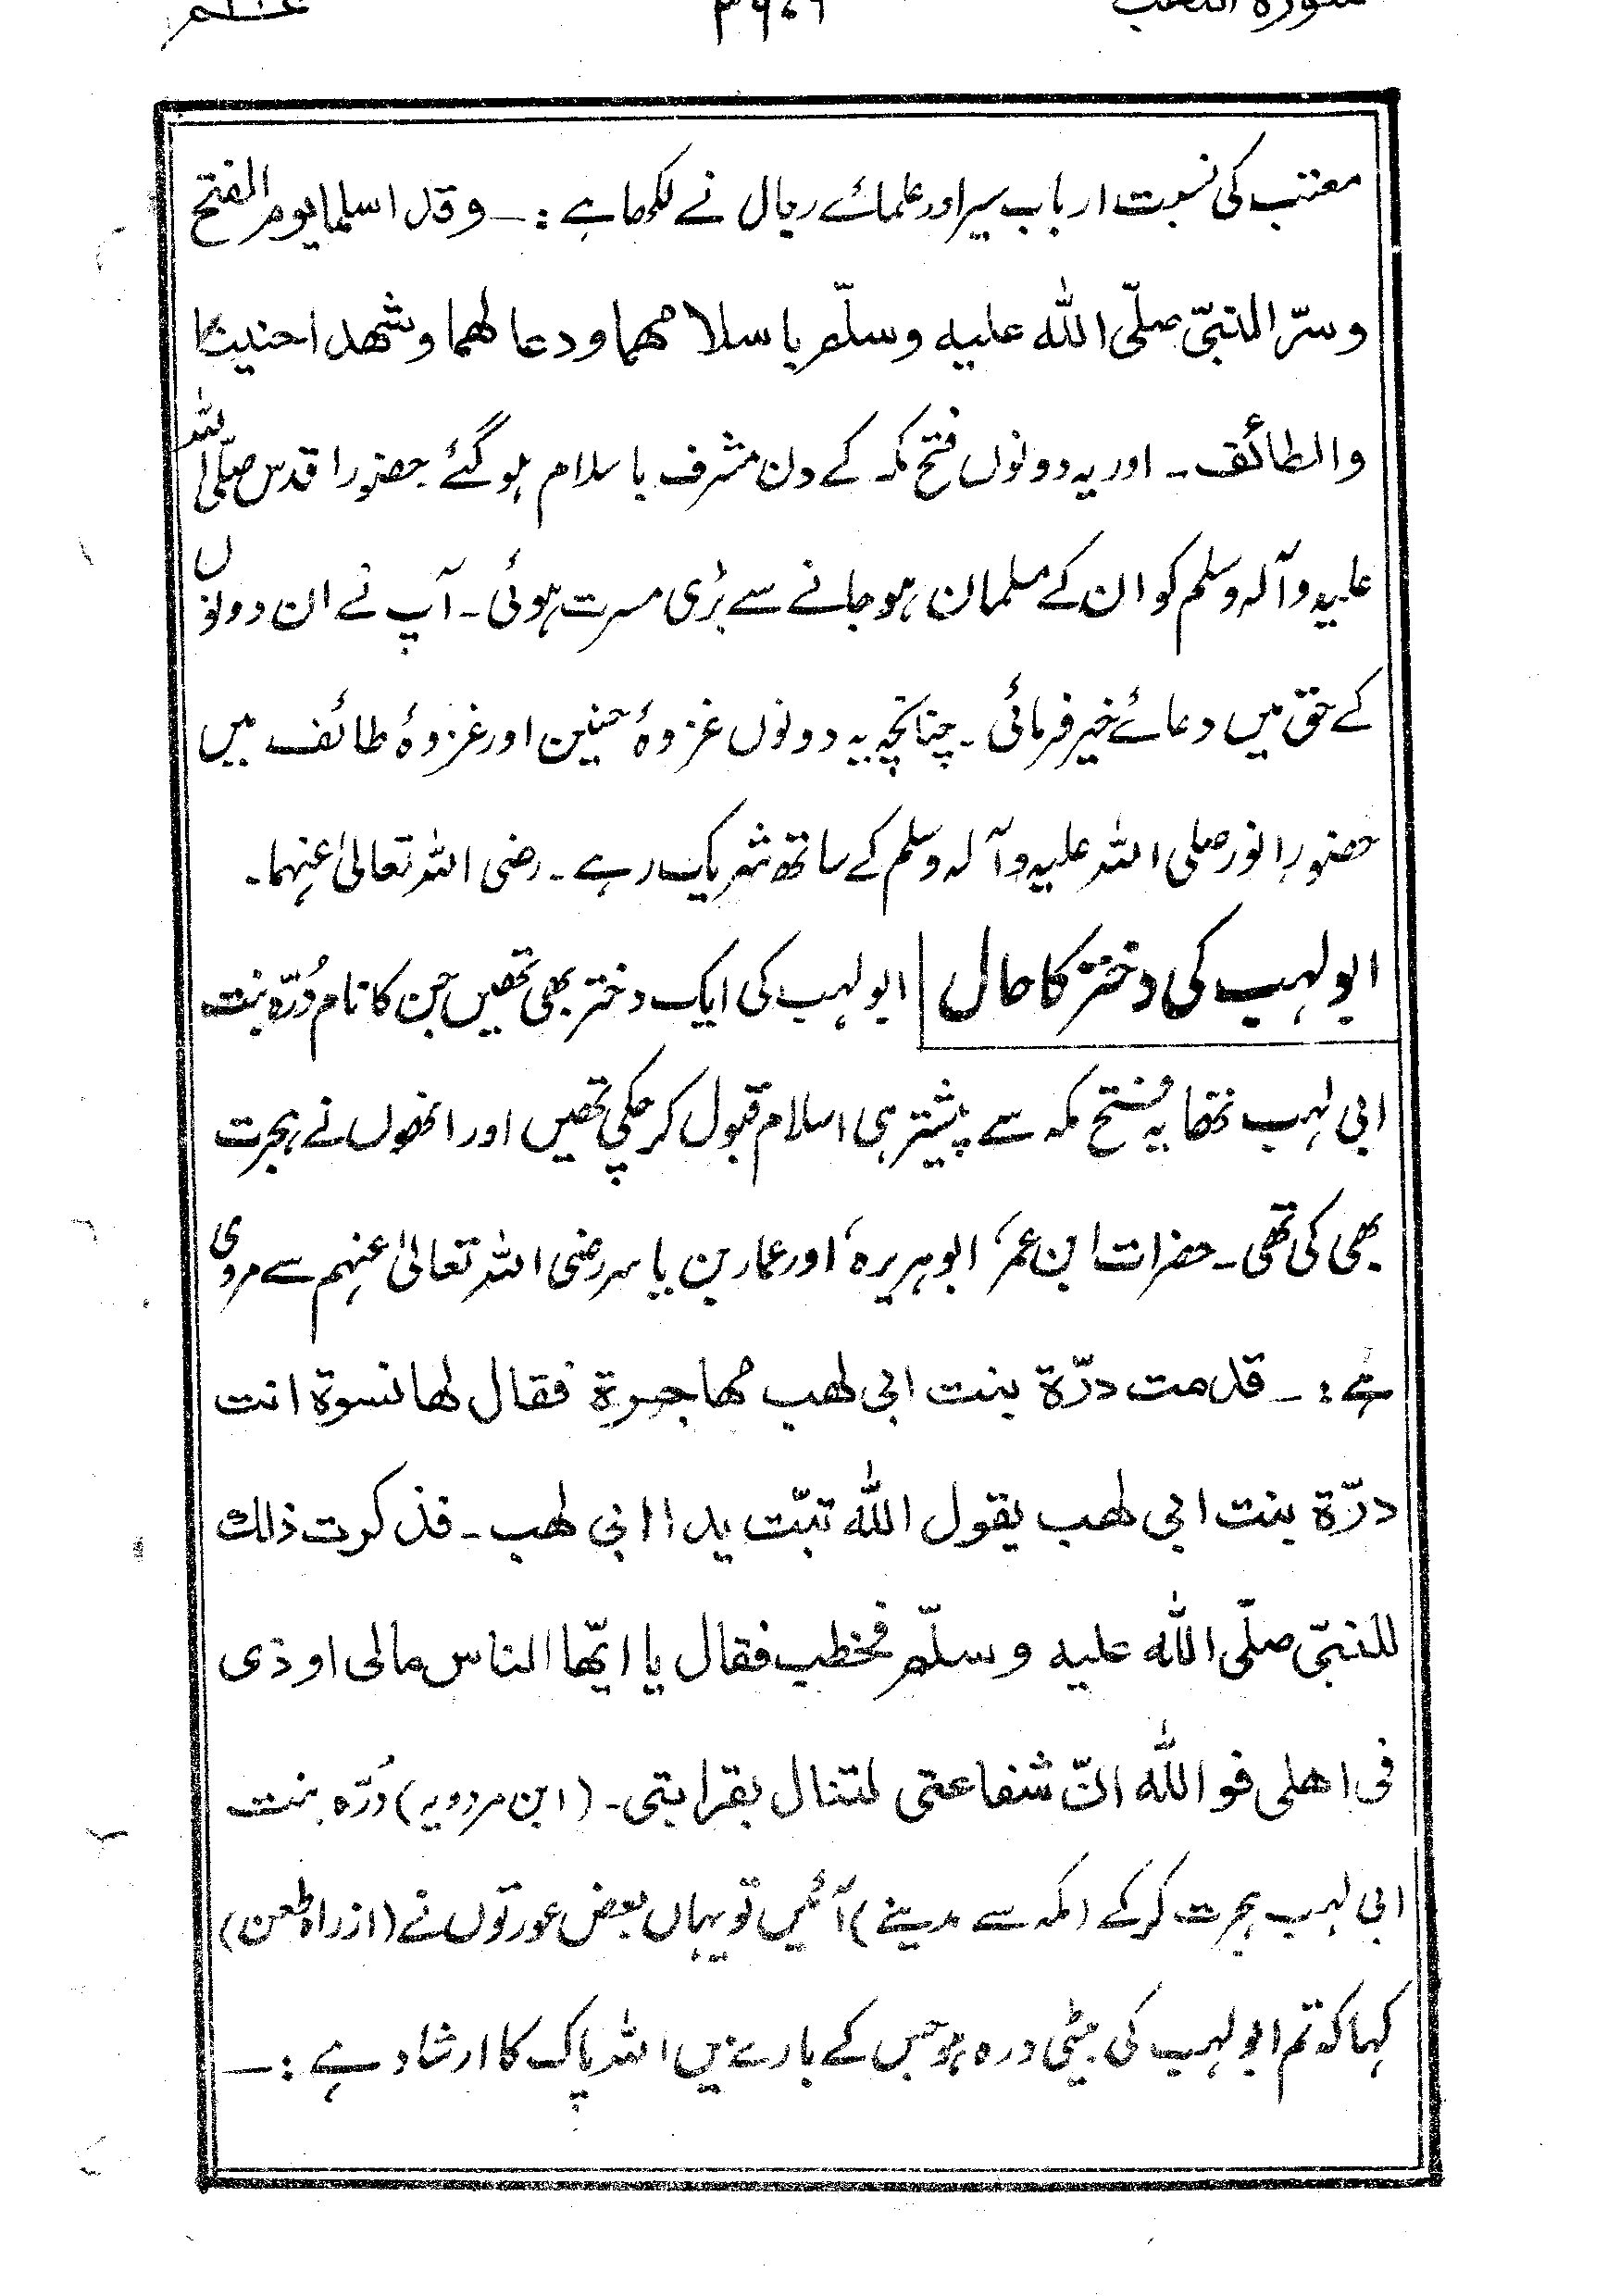 سورة اللھب
معتب کی نسبت ارباب سیر اور علمائے رجال نے لکھا ہے :۔ وقد اسلما یوم الفتح
وسرّ النبیّ صلّی اللّٰه علیه وسلّم باسلامهما ودعا لهما وشهدا حنینا
والطائف ۔ اور یہ دونوں فتح مکہ کے دن مشرف باسلام ہو گئے حضور اقدس صلی اللہ
علیہ وآلہ وسلم کو ان کے مسلمان ہو جانے سے بڑی مسرت ہوئی ۔ آپ نے ان دونوں
کے حق میں دعائے خیر فرمائی ۔ چنانچہ یہ دونوں غزوۂ حنین اور غزوۂ طائف میں
حضور انور صلی اللہ علیہ وآلہ وسلم کے ساتھ شریک رہے ۔ رضی اللہ تعالیٰ عنہما ۔
ابو لہب کی دختر کا حال ابو لہب کی ایک دختر بھی تھیں جن کا نام دُرّہ بنت
ابی لہب تھا یہ فتح مکہ سے پیشتر ہی اسلام قبول کر چکی تھیں اور انھوں نے ہجرت
بھی کی تھی ۔ حضرات ابن عمر، ابو ہریرہ، اور عمار بن یاسر رضی اللہ تعالیٰ عنہم سے مروی
ہے :۔ قدمت درّة بنت ابی لهب مهاجرة فقال لها نسوة انت
درّة بنت ابی لهب یقول اللّٰه تبّت یدا ابی لهب ۔ فذکرت ذلك
للنبیّ صلّی اللّٰه علیه وسلّم فخطب فقال یا ایّها الناس مالی اوذی
فی اهلی فو اللّٰه انّ شفاعتی لتنال بقرابتی ۔ (ابن مردویہ) دُرّہ بنت
ابی لہب ہجرت کر کے (مکہ سے مدینے) آئیں تو یہاں بعض عورتوں نے (از راہ طعن)
کہا کہ تم ابو لہب کی بیٹی درہ ہو جس کے بارے میں اللہ پاک کا ارشاد ہے :۔